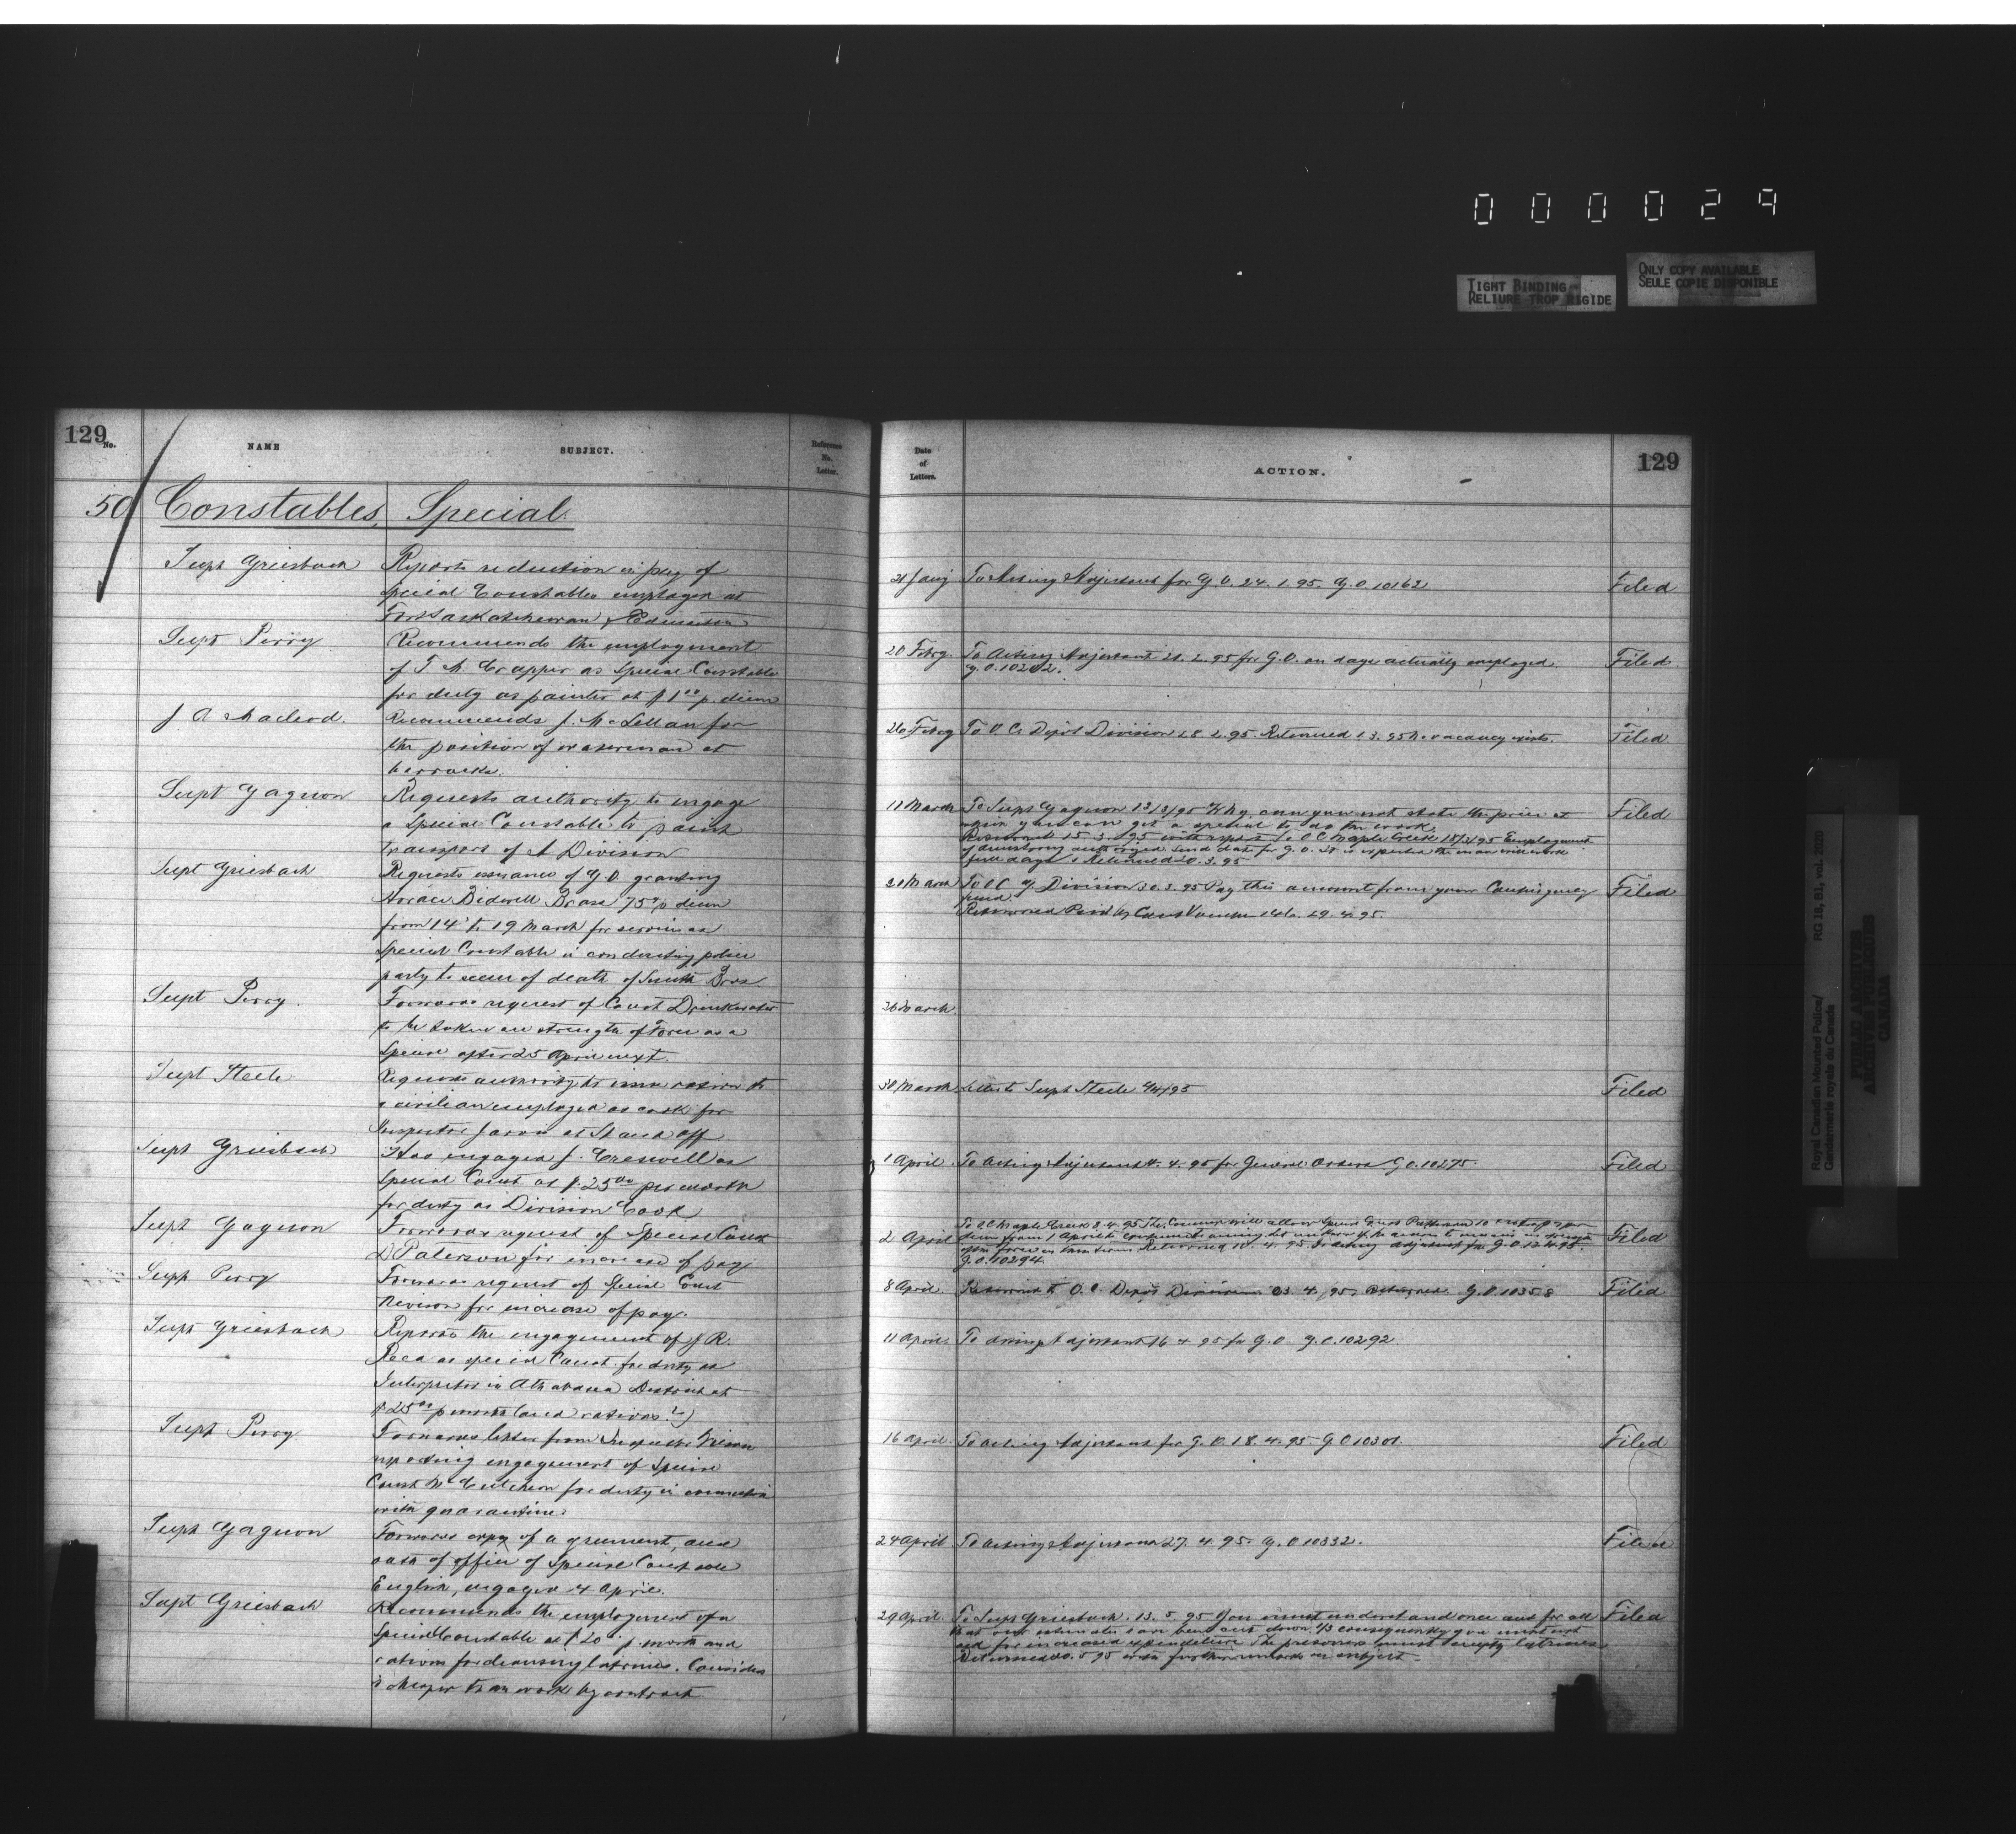 000029
TIGHT BINDING
RELIURE TROP RIGIDE
ONLY COPY AVAILABLE
SEULE COPIE DISPONIBLE
129
No.
NAME
SUBJECT.
Reference
No.
Letter.
Date
of
Letters.
ACTION.
129
50 Constables, Special.
Supt Griesbach
Reports reduction in pay of
Special Constables employed at
Fort Saskatchewan & Edmonton
21 Jany To Acting Adjutant for G.O. 24.1.95. G.O. 10162
Filed
Supt Perry
Recommends the employment
of T. A. Crapper as Special Constable
for duty as painter at $1 00 p. diem
20 Febry To Acting Adjutant 21.2.95 for G.O. on days actually employed.
G.O. 10202.
Filed
J A Macleod.
Recommends J. McLellan for
the position of at
barracks.
26 Febry To O.C. Depôt Division 28.2.95. Returned 1.3.95 No vacancy exists.
Filed
Supt Gagnon
Requests authority to engage
a Special Constable to paint
transport of A Division
11 March To Supt Gagnon 13/3/95 Why can you not state the price at
which you can get a special to do the work.
Returned 15.3.95 with report. To O C Maple Creek 18/3/95 Employment
of authorized. Send date for G.O. It is expected the man will work
full days. Returned 20.3.95
Filed
Supt Griesbach
Requests issuance of G.O. granting
Horace Bidwell Brase 75c p diem
from 14 to 19 March for services as
Special Constable in conducting police
party to scene of death of Smith Bros
20 March To O C G Division 30.3.95 Pay this amount from your Contingency
fund.
Returned Paid by Cont Voucher 29.4.95
Filed
Supt Perry.
Forwards request of Const Drinkwater
to be taken on strength of Force as a
Special after 25 April next.
26 March
Supt Steele
Requests authority to issue rations to
a civilian employed as cook for
Inspector Jarvis at Stand off
30 March Letter to Supt Steele 4/4/95
Filed
Supt Griesbach
Has engaged J. Creswell as
Special Const at $25 00 per month
for duty as Division Cook
1 April To Acting Adjutant 4.4.95 for General Orders G.O. 10275.
Filed
Supt Gagnon
Forwards request of Special Const
D Paterson for increase of pay
2 April To O.C Maple Creek 8.4.95 The Commr will allow Special Const Patterson
diem from 1 April
Returned 4.95 To Acting Adjutant for G.O. 12.4.95
G.O. 10294
Filed
Supt Perry
Forwards request of Special Const
Nevison for increase of pay.
8 April Returned to O.C. Depôt Division 23.4.95 Returned G.O. 10358
Filed
Supt Griesbach
Reports the engagement of J R.
Reed as special Const for duty as
Interpreter in Athabasca District at
$25 00 p month (and rations?)
11 April To Acting Adjutant 16.4.95 for G.O. G.O. 10292.
Supt Perry
Forwards letter from Inspector
reporting engagement of Special
Const McCutcheon for duty in connection
with quarantine
16 April To Acting Adjutant for G.O. 18.4.95 G.O. 10301.
Filed
Supt Gagnon
Forwards copy of agreement, and
oath of office of Special Const
English, engaged 4 April.
24 April To Acting Adjutant 27.4.95. G.O. 10332.
Filed
Supt Griesbach
Recommends the employment of a
Special Constable at $20 p. month and
rations for cleansing latrines. Considers
cheaper than work by contract
29 April. To Supt Griesbach. 13.5.95 You must understand once and for all
that our estimates have been cut down 1/3 consequently you must not
ask for increased expenditure. The prisoners must empty latrines
Returned 20.5.95 with further remarks on subject.
Filed
Royal Canadian Mounted Police/
Gendarmerie royale du Canada
RG 18, B1, vol. 2020
PUBLIC ARCHIVES
ARCHIVES PUBLIQUES
CANADA